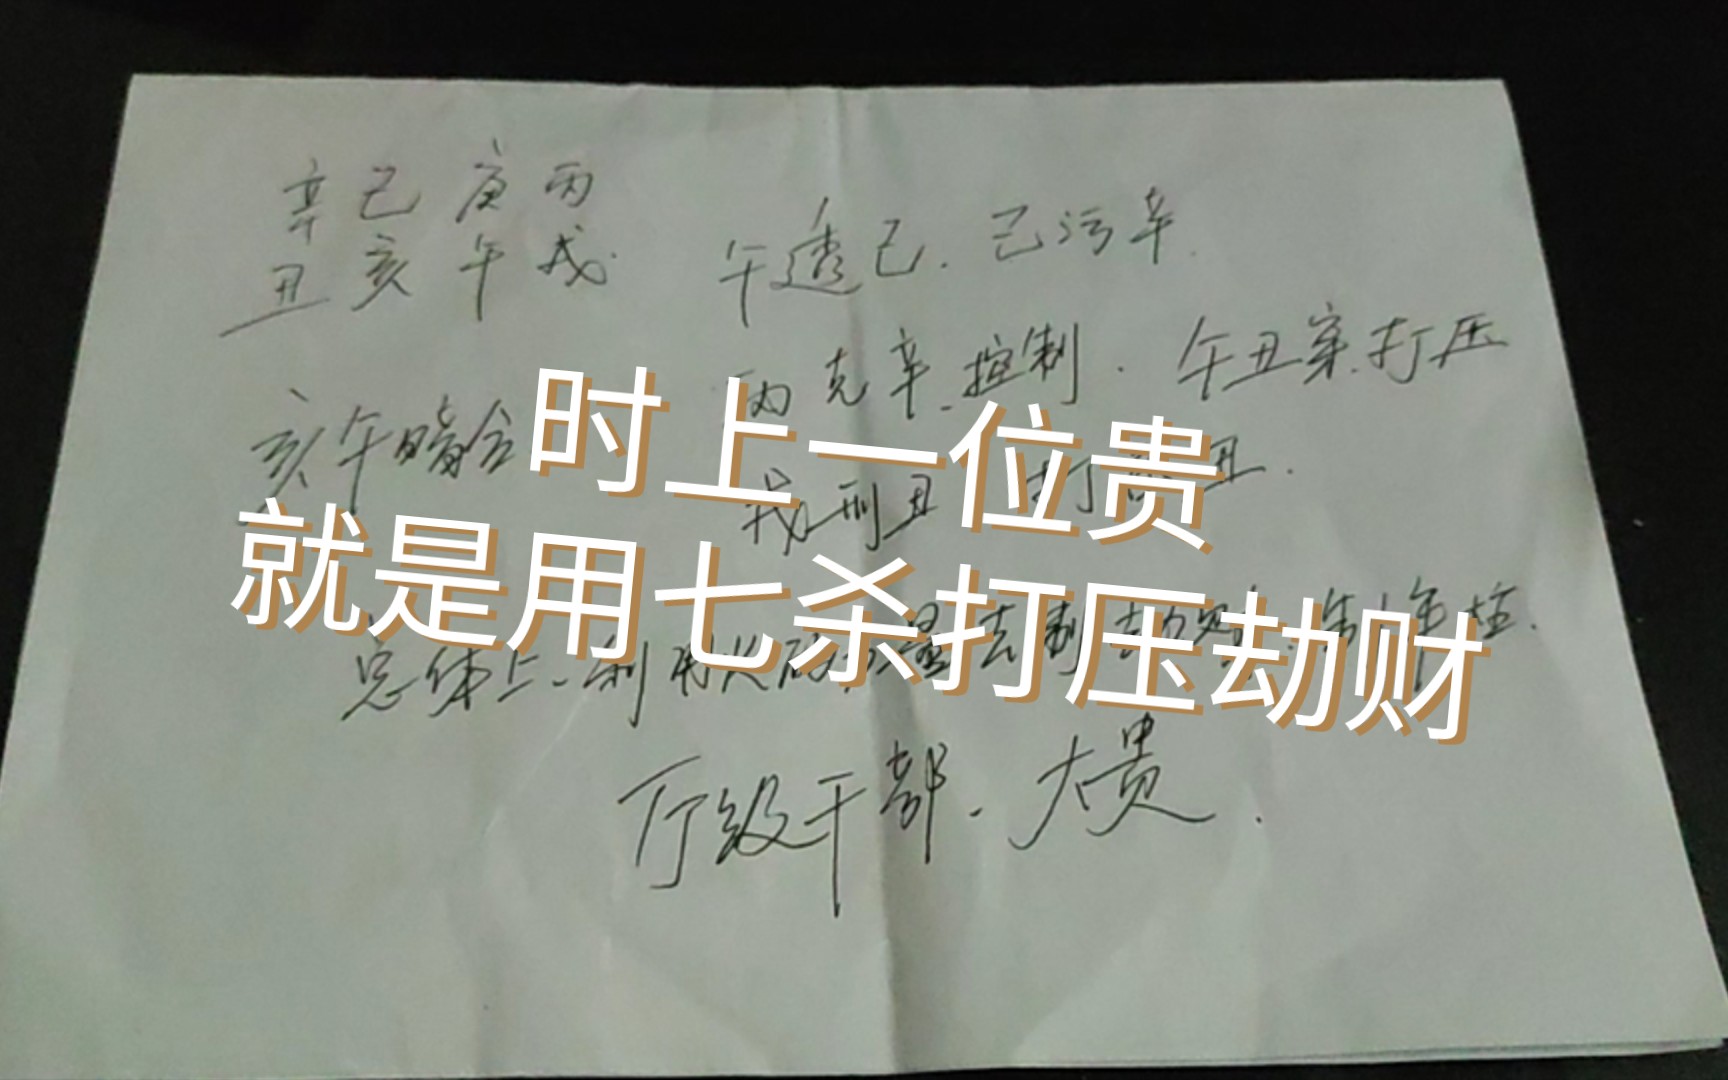 辛己庚丙
丑亥午戌
午透己.己污辛.
丙克辛.控制.午丑穿.打压
亥午暗合
戌刑丑 打 丑.
时上一位贵
就是用七杀打压劫财
总体上.利用火 量去制劫财 年柱.
厅级干部.大贵.